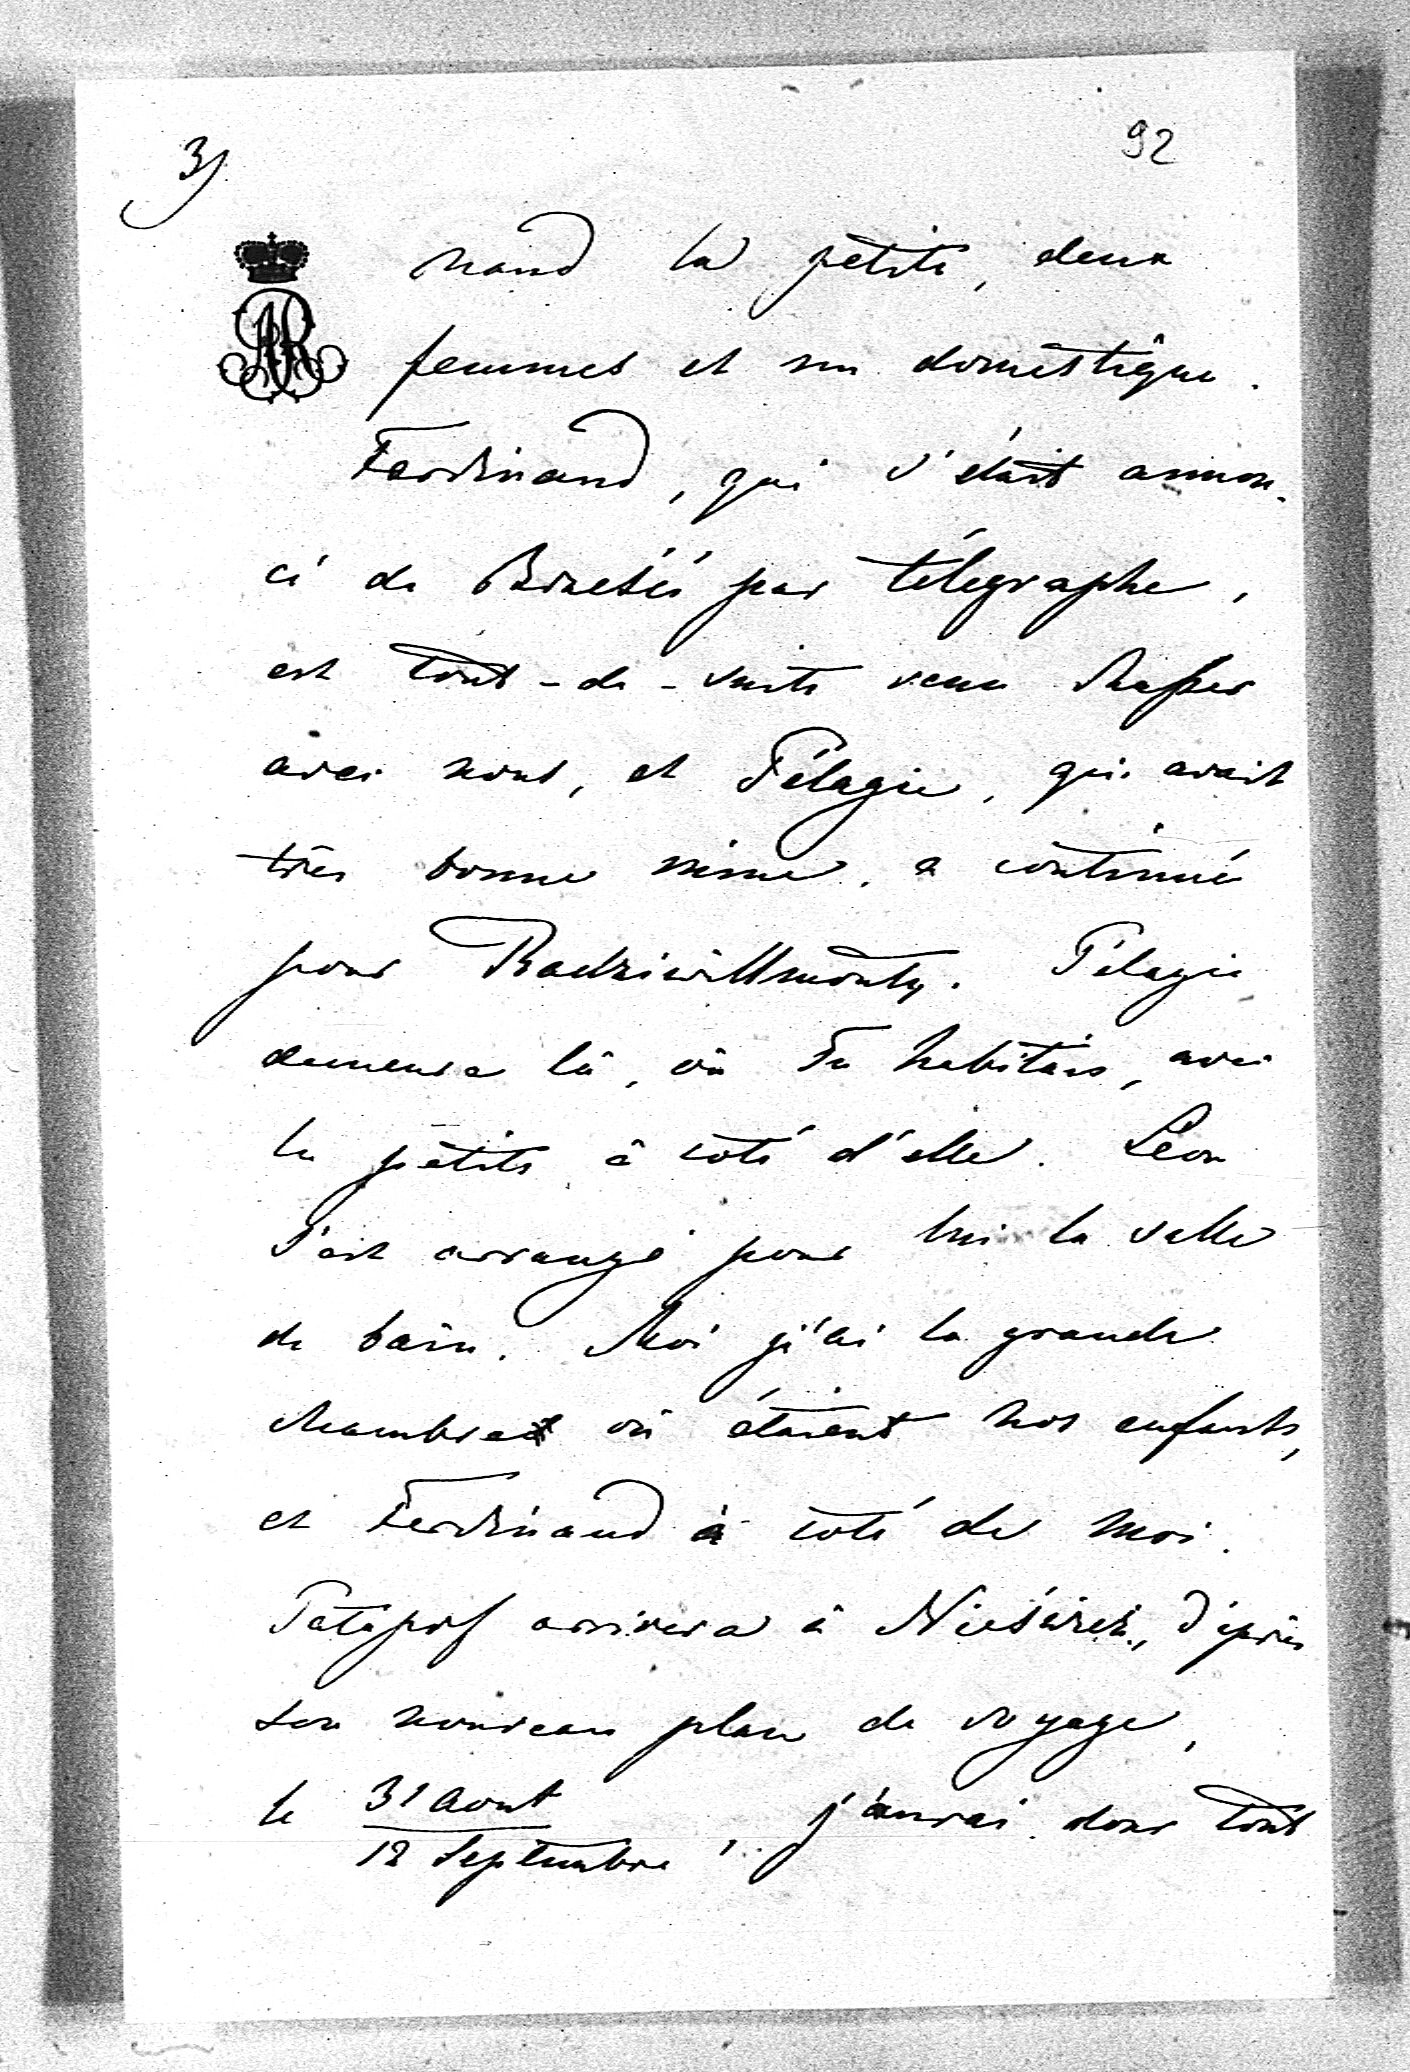 3)
92
nand la petite, deux
femmes et un domestique.
Ferdinand, qui s'était annon-
cé de Brześć par télegraphe,
est tout-de-suite venu chasser
avec nous, et Pélagie, qui avait
très bonne mine, a continué
pour Radziwillmonty. Pélagie
demeure là, où Tu habitais, avec
la petite à coté d'elle. Léon
s'est arrangé pour lui la salle
de bain. Moi j'ai la grande
chambre où étaient nos enfants,
et Ferdinand à coté de moi.
arrivera à Nieśwież, d'après
son nouveau plan de voyage,
le 31 Aout
12 Septembre, j'aurai donc tout